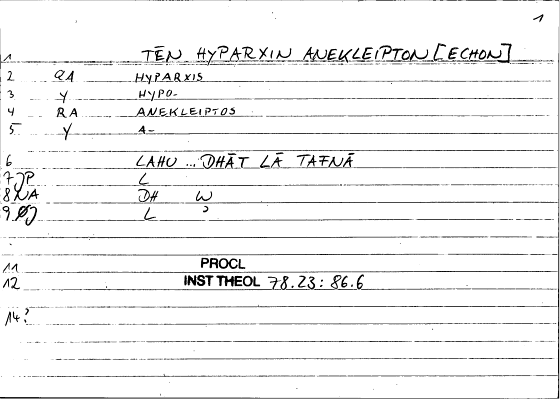 1
1 TĒN HYPARXIN ANEKLEIPTON [ECHON]
2 RA HYPARXIS
3 Y HYPO-
4 RA ANEKLEIPTOS
5 Y A-
6 LAHU ... DHĀT LĀ TAFNĀ
7 JP L
8 NA DH W
9 ØJ L ɔ
11 PROCL
12 INST THEOL 78.23: 86.6
14?